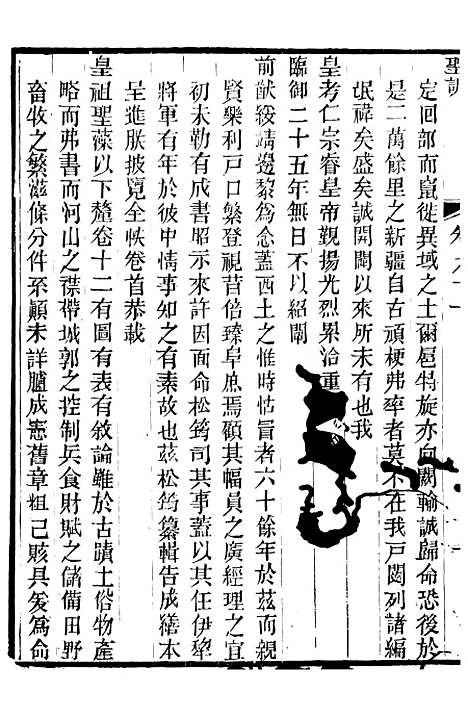 聖訓
定回部而崑從異域之士爾邑特旋亦向闕輸誠歸命恐後於
是二萬餘里之新疆自古頑梗弗率者莫不在我戸闥列諸編
氓褘矣盛矣誠開闢以來所未有也我
皇考仁宗睿皇帝覲揚光烈累洽重
臨御二十五年無日不以紹聞
前猷綏靖邊黎為念蓋西土之惟時怙冒者六十餘年於茲而親
賢樂利戸口繁登視昔倍臻阜庶焉顧其幅員之廣經理之宜
初未勒有成書昭示來許因面命松筠司其事蓋以其任伊犂
將軍有年於彼中情事知之有素故也茲松筠纂輯告成繕本
呈進朕披覽全帙卷首恭載
皇祖聖藻以下釐卷十二有圖有表有敘論雖於古蹟土俗物產
略而弗書而河山之襟帶城郭之控制兵食財賦之儲備田野
畜牧之繁滋條分件系顚末詳臚成憲舊章粗已賅具爰為命